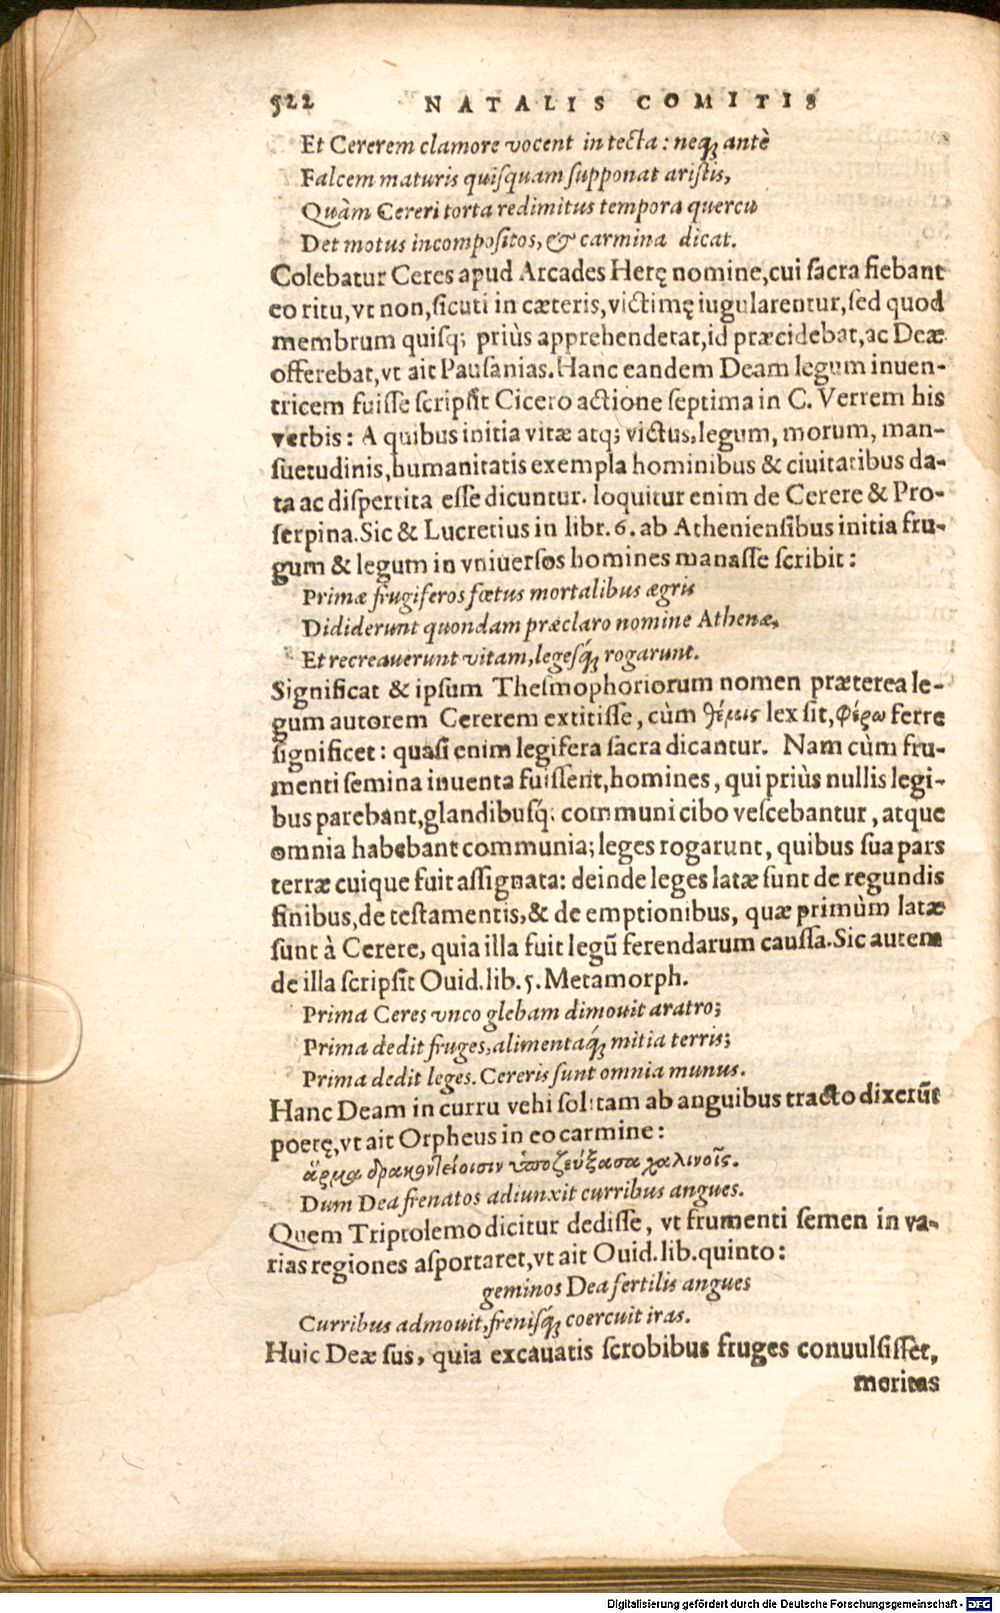 522 NATALIS COMITIS
Et Cererem clamore vocent in tecta: neq; antè
Falcem maturis quiſquam ſupponat ariſtis,
Quàm Cereri torta redimitus tempora quercu
Det motus incompoſitos, & carmina dicat.
Colebatur Ceres apud Arcades Herę nomine,cui ſacra fiebant
eo ritu,vt non,ſicuti in cæteris,victimę iugularentur,ſed quod
membrum quiſq; priùs apprehenderat,id præcidebat,ac Deæ
offerebat,vt ait Pauſanias.Hanc eandem Deam legum inuen-
tricem fuiſſe ſcripſit Cicero actione ſeptima in C. Verrem his
verbis: A quibus initia vitæ atq; victus,legum, morum, man-
ſuetudinis,humanitatis exempla hominibus & ciuitatibus da-
ta ac diſpertita eſſe dicuntur. loquitur enim de Cerere & Pro-
ſerpina.Sic & Lucretius in libr.6. ab Athenienſibus initia fru-
gum & legum in vniuerſos homines manaſſe ſcribit:
Primæ frugiferos fœtus mortalibus ægris
Dididerunt quondam præclaro nomine Athenæ,
Et recreauerunt vitam,legeſq́; rogarunt.
Significat & ipſum Theſmophoriorum nomen præterea le-
gum autorem Cererem extitiſſe, cùm θέμις lex ſit,φέρω ferre
ſignificet: quaſi enim legifera ſacra dicantur. Nam cùm fru-
menti ſemina inuenta fuiſſent,homines, qui priùs nullis legi-
bus parebant,glandibuſq́; communi cibo veſcebantur, atque
omnia habebant communia; leges rogarunt, quibus ſua pars
terræ cuique fuit aſſignata: deinde leges latæ ſunt de regundis
finibus,de teſtamentis,& de emptionibus, quæ primùm latæ
ſunt à Cerere, quia illa fuit legũ ferendarum cauſſa.Sic autem
de illa ſcripſit Ouid.lib.5.Metamorph.
Prima Ceres vnco glebam dimouit aratro;
Prima dedit fruges,alimentaq́; mitia terris;
Prima dedit leges. Cereris ſunt omnia munus.
Hanc Deam in curru vehi ſolitam ab anguibus tracto dixerũt
poetę,vt ait Orpheus in eo carmine:
ἅρμα δρακοντείοισιν ὑποζεύξασα χαλινοῖς.
Dum Dea frenatos adiunxit curribus angues.
Quem Triptolemo dicitur dediſſe, vt frumenti ſemen in va-
rias regiones aſportaret,vt ait Ouid.lib.quinto:
geminos Dea fertilis angues
Curribus admouit,freniſq́; coercuit iras.
Huic Deæ ſus, quia excauatis ſcrobibus fruges conuulſiſſet,
meritas
Digitalisierung gefördert durch die Deutsche Forschungsgemeinschaft - DFG